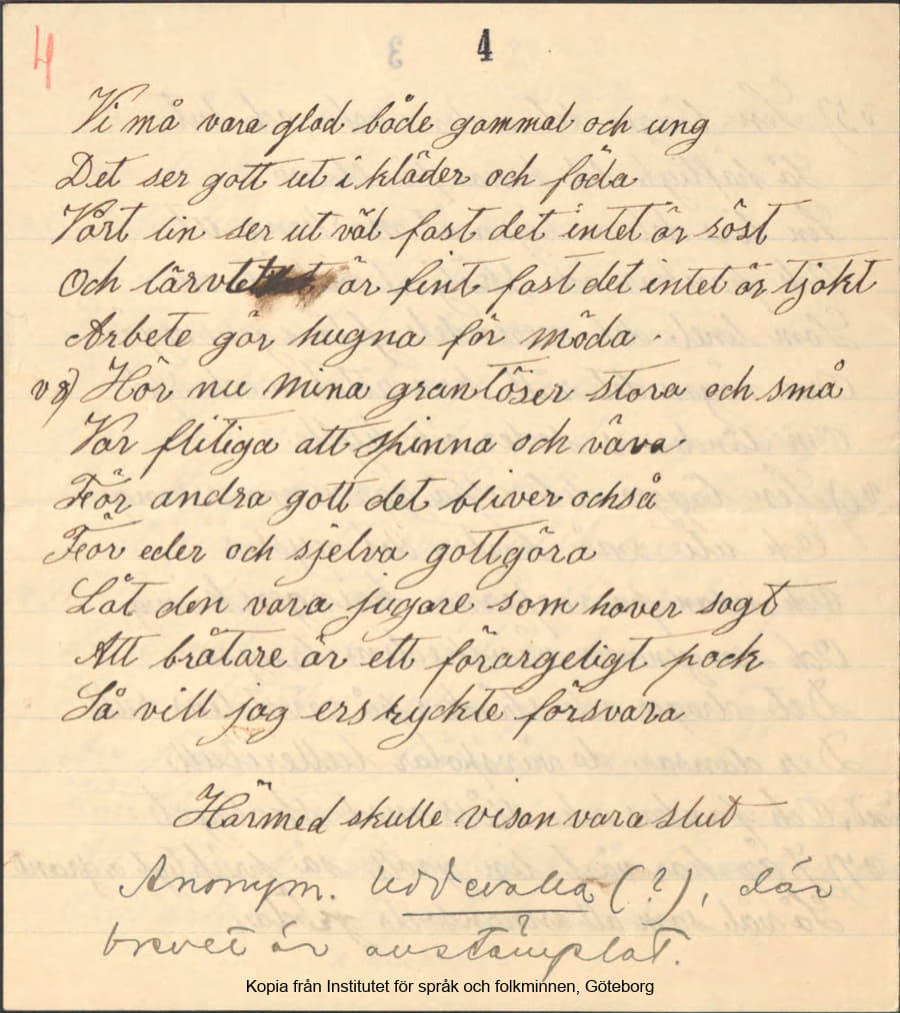 4 4
Vi må vara glad både gammal och ung
Det ser gott ut i kläder och föda
Vårt lin ser ut väl fast det intet är röst
Och lärvtet är fint fast det intet är tjokt
Arbete gör hugna för möda
v 8) Hör nu mina grantöser stora och små
Var flitiga att spinna och väva
För andra gott det bliver också
För eder och sjelva gottgöra
Låt den vara jugare som haver sagt
Att bråtare är ett förargeligt pack
Så vill jag ers ryckte försvara
Härmed skulle visan vara slut
Anonym. Uddevalla (?), där
brevet är avstämplat.
Kopia från Institutet för språk och folkminnen, Göteborg